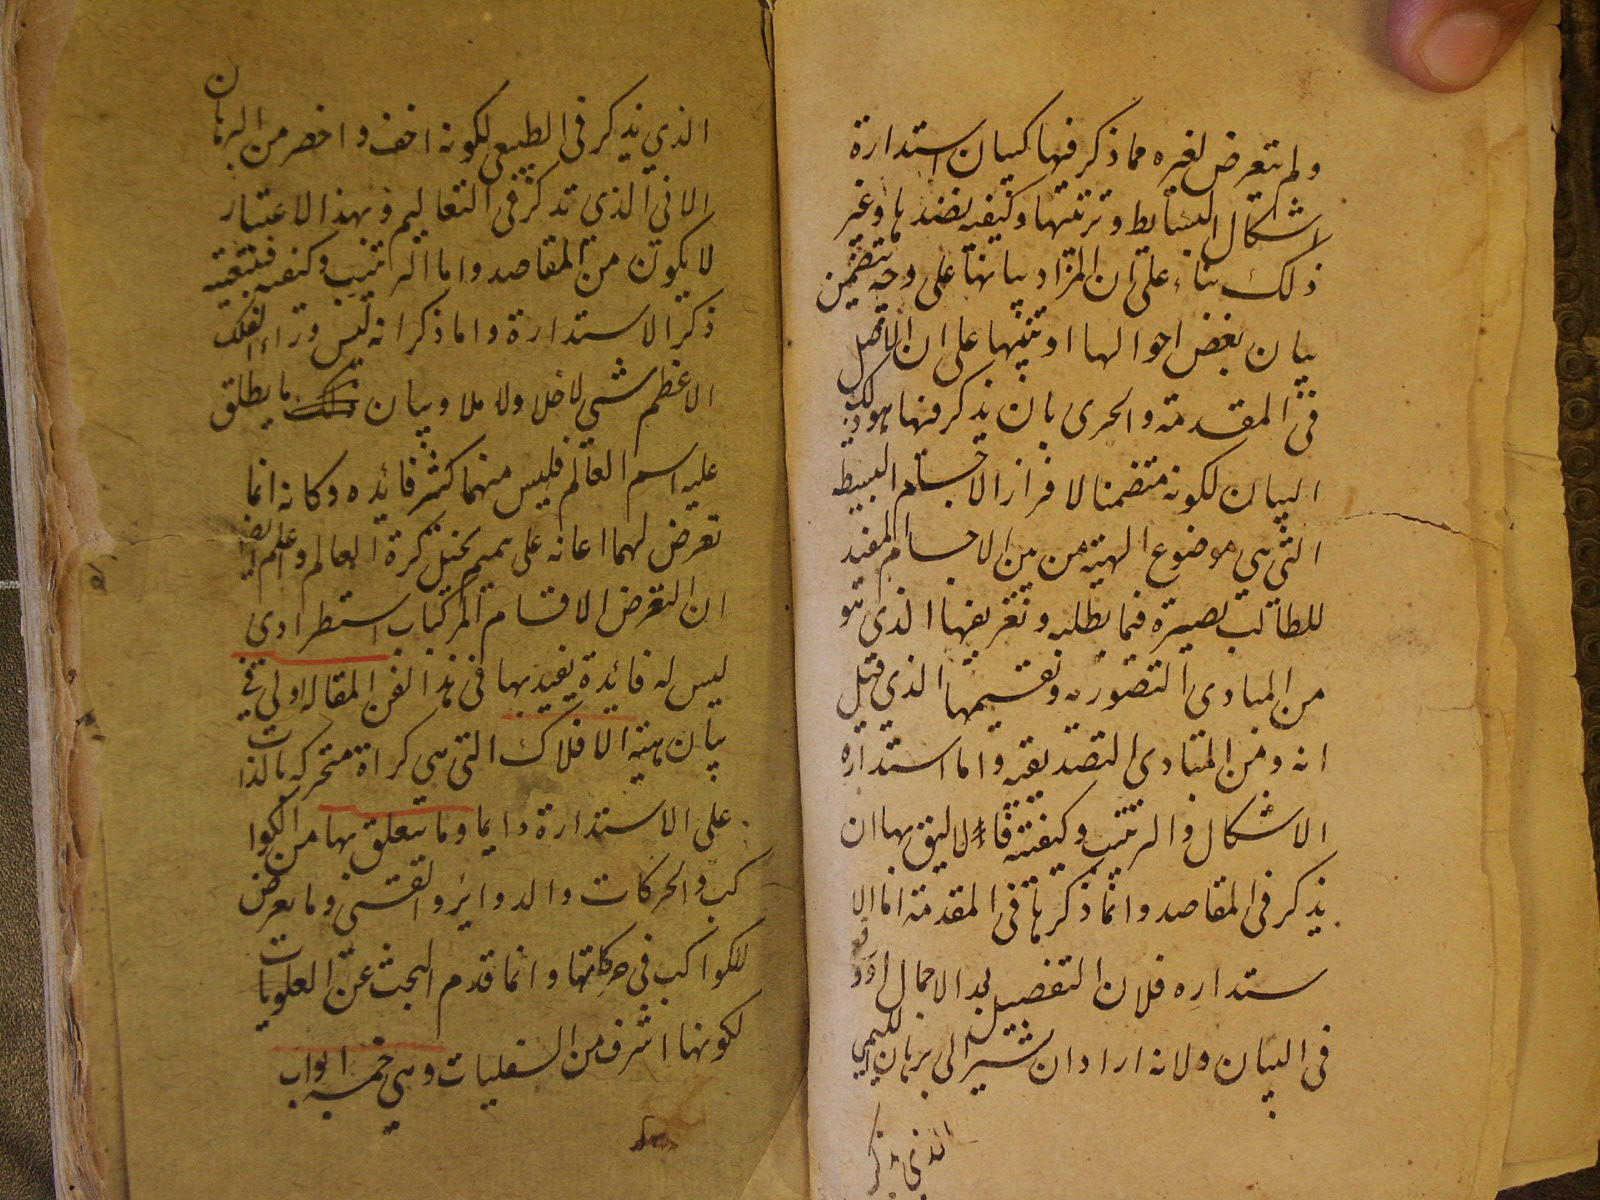 ولم يتعرض لغيره مما ذكر فيها كبيان استدارة
اشكال البسايط وترتيبها وكيفيه نضدها وغير
ذلك بناء على ان المراد بيانها على وجه يتضمن
بيان بعض احوالها او تنبيها على ان الاصل
فى المقدمة والحرى بان يذكر فيها هو ذلك
البيان لكونه متضمنا لافراز الاجسام البسيطه
التى هى موضوع الهيئة من بين الاجسام المفيد
للطالب بصيرة فيما يطلبه وتعريفها الذى هو
من المبادى التصوريه وتقسيمها الذى قيل
انه من المبادى التصديقيه واما استداره
الاشكال والترتيب وكيفيته فاللايق بها ان
يذكر فى المقاصد وانما ذكرها فى المقدمة اما الا
ستداره فلان التفصيل بعد الاجمال اوقع
فى البيان ولانه اراد ان يشير الى برهان اللمى
الذى يذكر
الذي يذكر فى الطبيعى لكونه اخف واخصر من البرهان
الانى الذى تذكر فى التعاليم وبهذا الاعتبار
لا يكون من المقاصد واما الترتيب وكيفيه فبتبعيته
ذكر الاستدارة واما ذكر انه ليس وراء الفلك
الاعظم شىء لا خلا ولا ملا وبيان ما يطلق
عليه اسم العالم فليس منهما كثير فائده وكانه انما
تعرض لهما اعانه على تتميم تخيل كرة العالم واعلم ايضا
ان التعرض الاقسام المركبات استطرادى
ليس له فائدة يعتد بها فى هذا الفن المقاله اولى فى
بيان هيئة الافلاك التى هى كراة متحركه بالذات
على الاستدارة دايما وما يتعلق بها من الكوا
كب والحركات والدوائر والقسى وما يعرض
للكواكب فى حركاتها وانما قدم البحث عن العلويات
لكونها اشرف من السفليات وهى خمسه ابواب